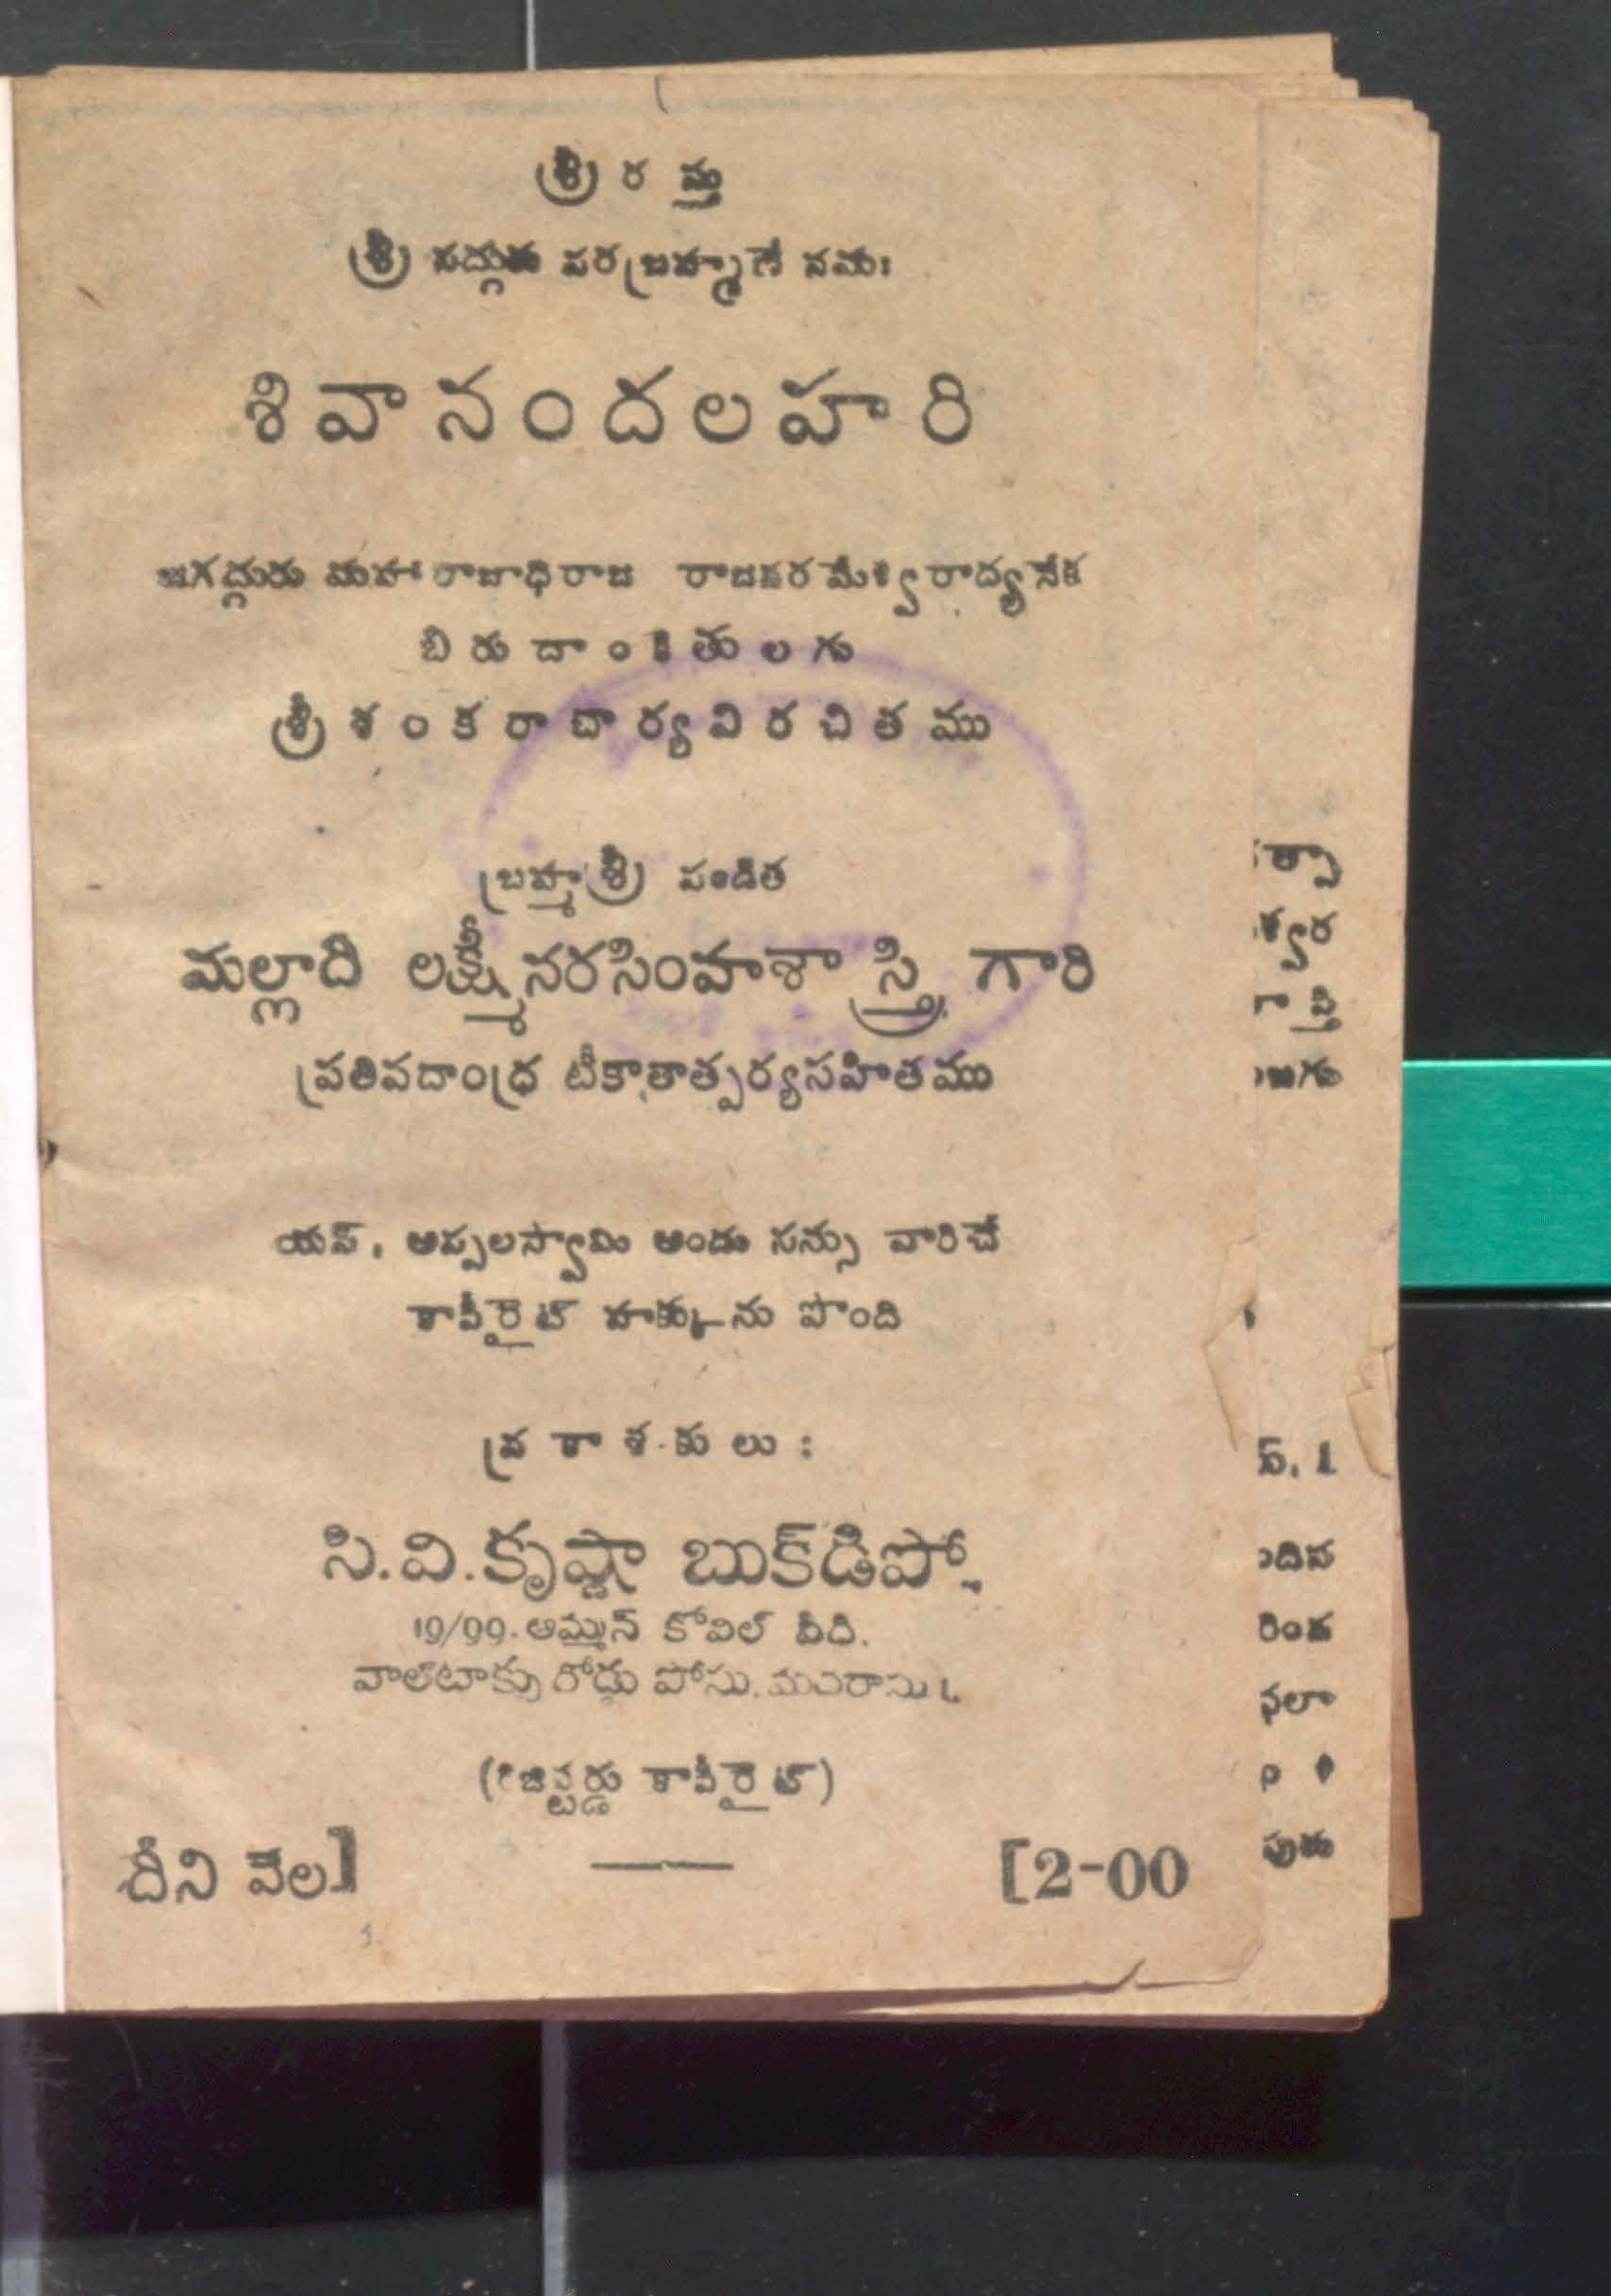 శ్రీ ర స్తు
శ్రీ సద్గురు పరబ్రహ్మణే నమః
శి వా నం ద ల హ రి
జగద్గురు మహారాజాధిరాజ రాజపరమేశ్వరాద్యనేక
బి రు దాం కి తు ల గు
శ్రీ శం క రా చా ర్య వి ర చి త ము
బ్రహ్మశ్రీ పండిత
మల్లాది లక్ష్మీనరసింహశాస్త్రి గారి
ప్రతిపదాంధ్ర టీకాతాత్పర్యసహితము
యస్. అప్పలస్వామి అండు సన్సు వారిచే
కాపీరైట్ హక్కును పొంది
ప్ర కా శ కు లు :
సి.వి.కృష్ణా బుక్‌డిపో,
19/99. అమ్మన్ కోవిల్ వీధి.
వాల్‌టాక్సు రోడ్డు పోస్టు. మదరాసు 1.
(రిజిస్టర్డు కాపీరైట్)
దీని వేల] [2-00